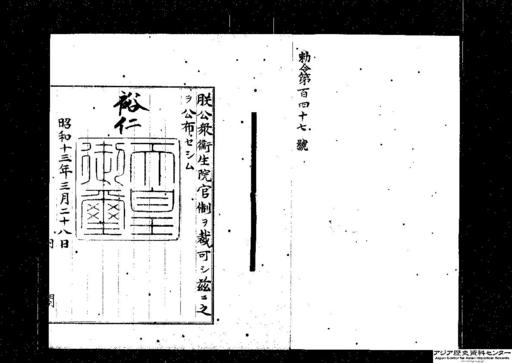 勅令第百四十七號
朕公衆衞生院官制ヲ裁可シ茲ニ之
ヲ公布セシム
裕仁
天皇御璽
昭和十三年三月二十八日
アジア歴史資料センター
Japan Center for Asian Historical Records